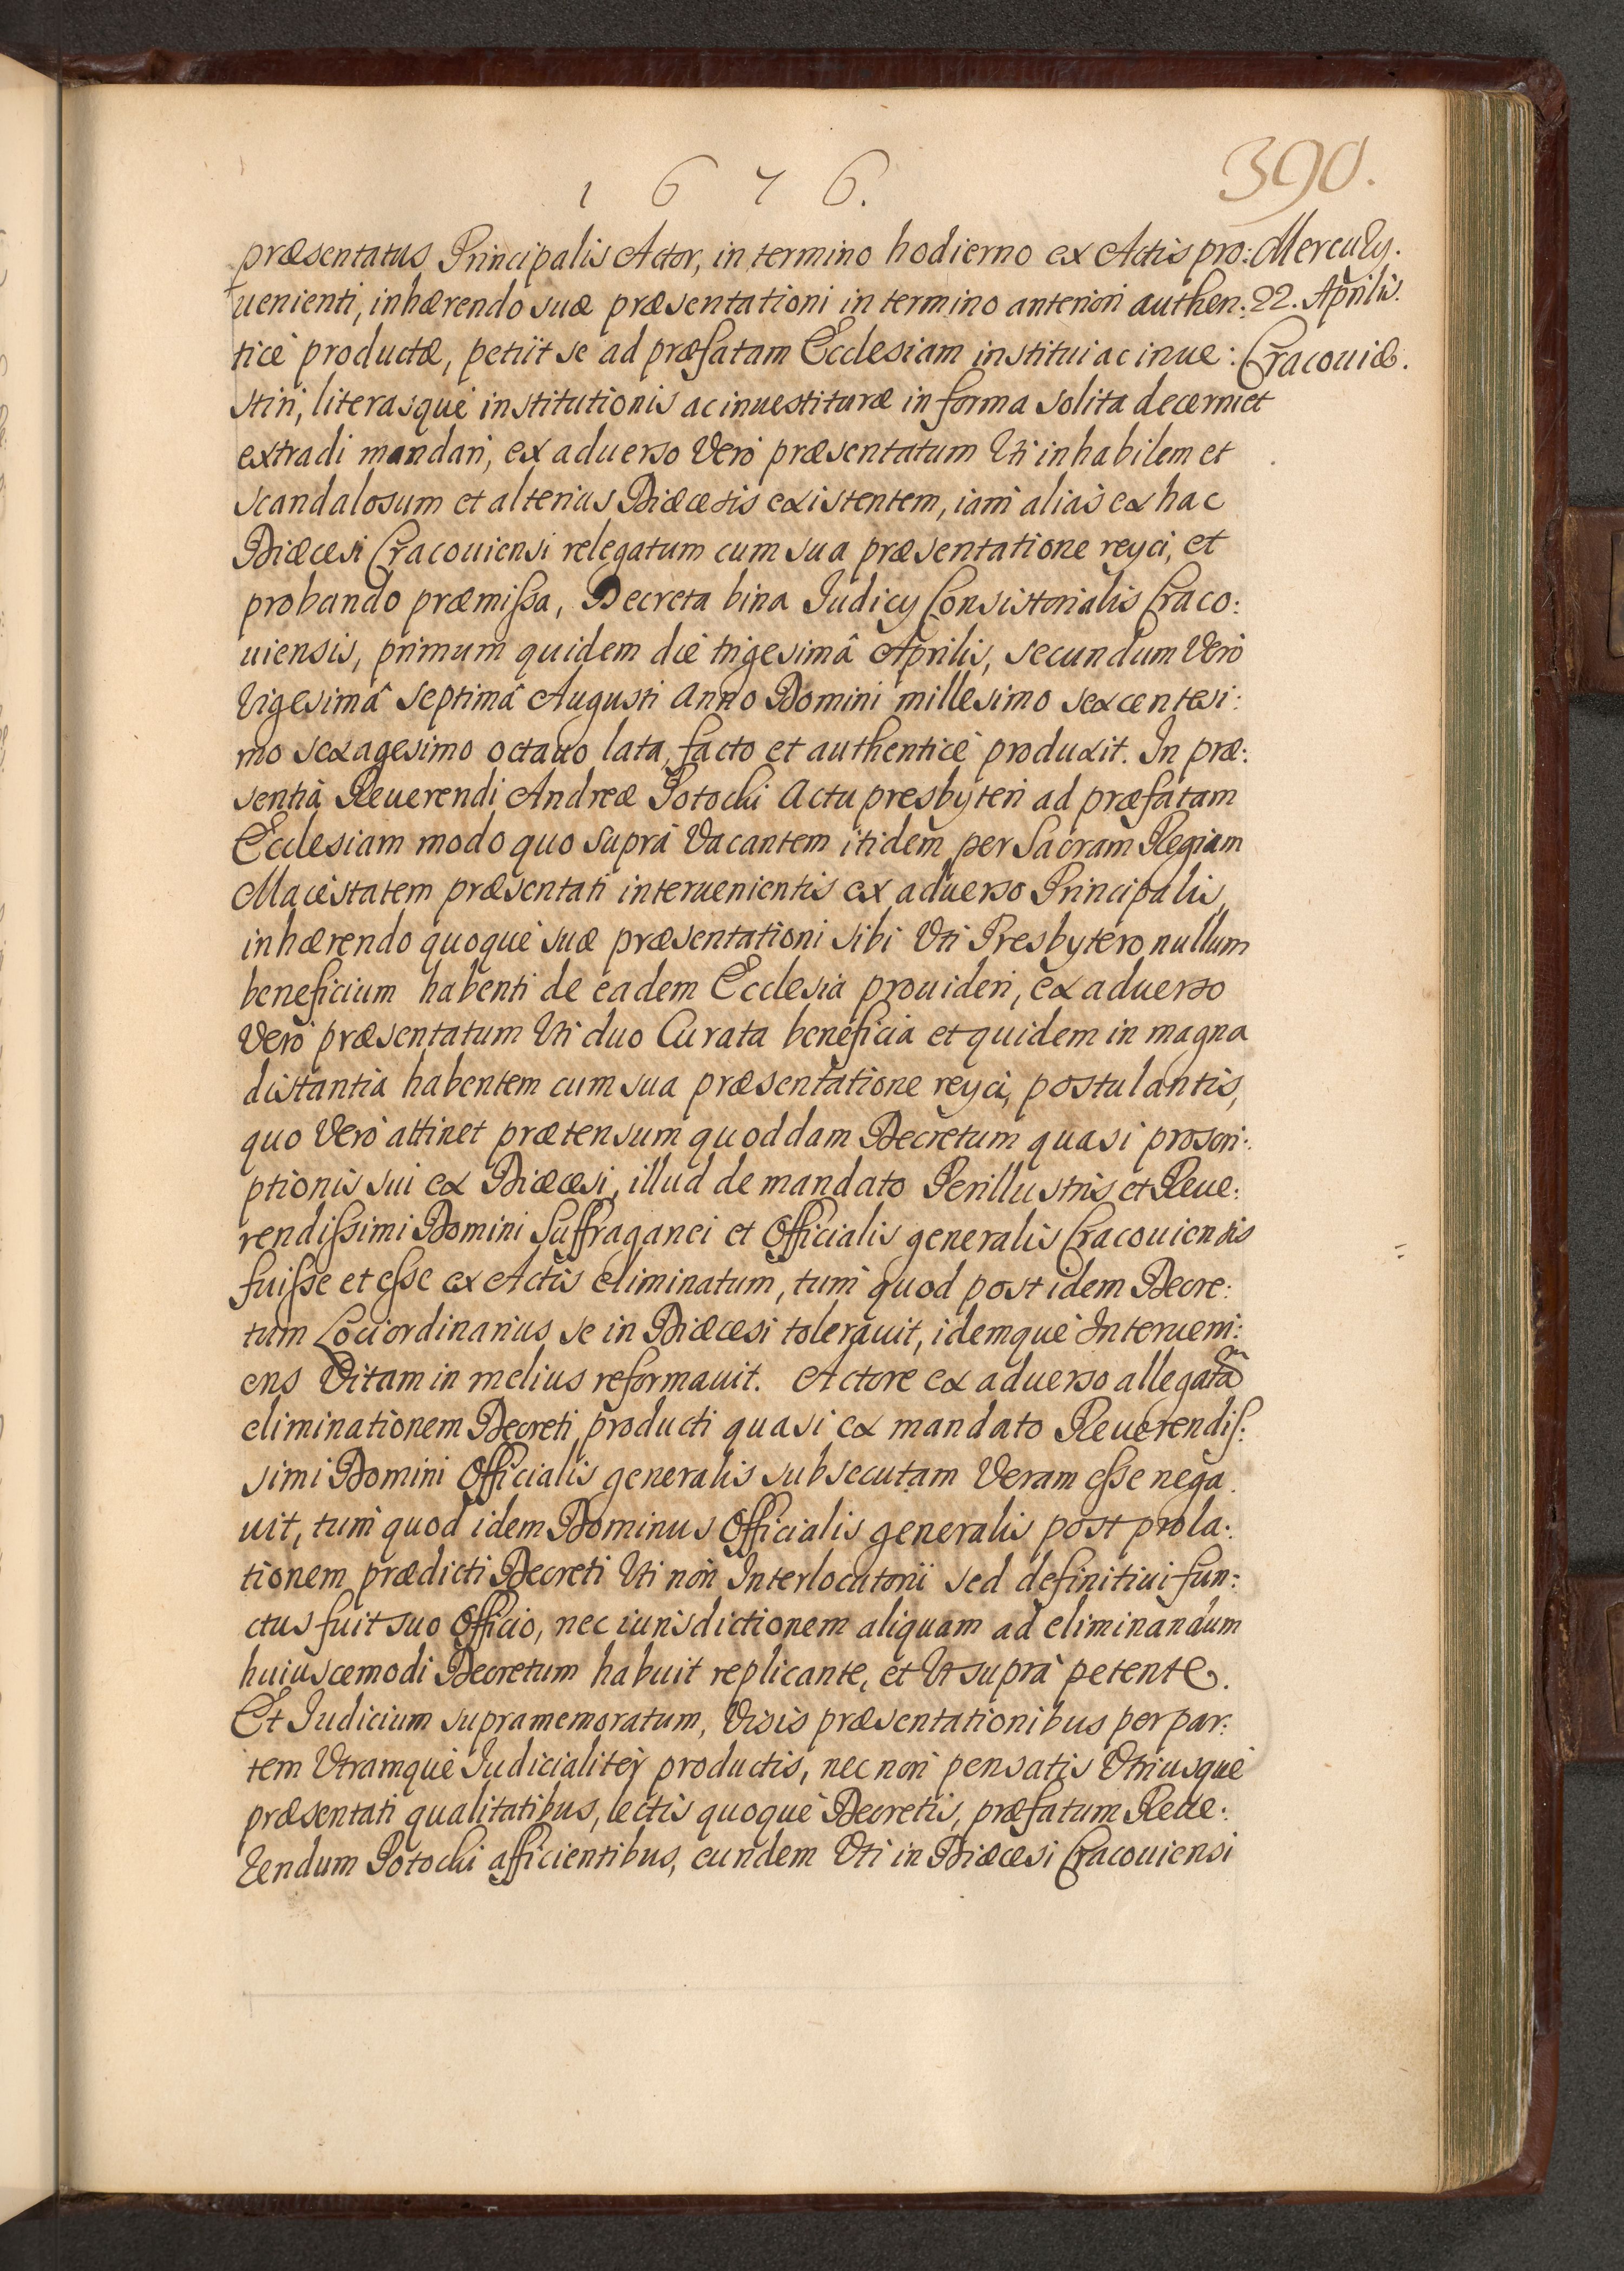 1676.
390.
præsentatus Principalis Actor, in termino hodierno ex Actis pro:
uenienti, inhærendo suæ præsentationi in termino anteriori authen:
ticè productæ, petijt se ad præfatam Ecclesiam institui ac inue:
stiri, literasque institutionis ac inuestituræ in forma solita decerni et
extradi mandari, ex aduerso Verò præsentatum Vti inhabilem et
scandalosum et alterius Diæcesis existentem, iam alias ex hac
Diæcesi Cracouiensi relegatum cum sua præsentatione reyci, et
probando præmissa, Decreta bina Iudicy Consistorialis Craco:
uiensis, primum quidem die trigesimâ Aprilis, secundum Verò
Vigesimâ septimâ Augusti Anno Domini millesimo sexcentesi:
mo sexagesimo octauo lata, facto et authenticè produxit. In præ:
sentiâ Reuerendi Andreæ Potocki Actu presbyteri ad præfatam
Ecclesiam modo quo suprà Vacantem itidem per Sacram Regiam
Maiestatem præsentati interuenientis ex aduerso Principalis,
inhærendo quoque suæ præsentationi sibi Vti Presbytero nullum
beneficium habenti de eadem Ecclesia prouideri, ex aduerso
Verò præsentatum Vti duo Curata beneficia et quidem in magna
distantia habentem cum sua præsentatione reyci, postulantis,
quo Verò attinet prætensum quoddam Decretum quasi proscri:
ptionis sui ex Diæcesi, illud de mandato Perillustris et Reue:
rendissimi Domini Suffraganei et Officialis generalis Cracouiensis
fuisse et esse ex Actis eliminatum, tum quod post idem Decre:
tum Loci ordinarius se in Diæcesi tolerauit, idemque Interueni:
ens Vitam in melius reformauit. Actore ex aduerso allegatam
eliminationem Decreti producti quasi ex mandato Reuerendis:
simi Domini Officialis generalis subsecutam Veram esse nega
uit, tum quod idem Dominus Officialis generalis post prola:
tionem prædicti Decreti Vti non Interlocutorii sed definitiui fun:
ctus fuit suo Officio, nec iurisdictionem aliquam ad eliminandum
huiuscemodi Decretum habuit replicante, et Vt suprà petente.
Et Iudicium supramemoratum, Visis præsentationibus per par:
tem Vtramque Iudicialiter productis, nec non pensatis Vtriusque
præsentati qualitatibus, lectis quoque Decretis, præfatum Reue:
rendum Potocki afficientibus, eundem Vti in Diæcesi Cracouiensi
Mercurÿ.
22. Aprilis.
Cracouiæ.